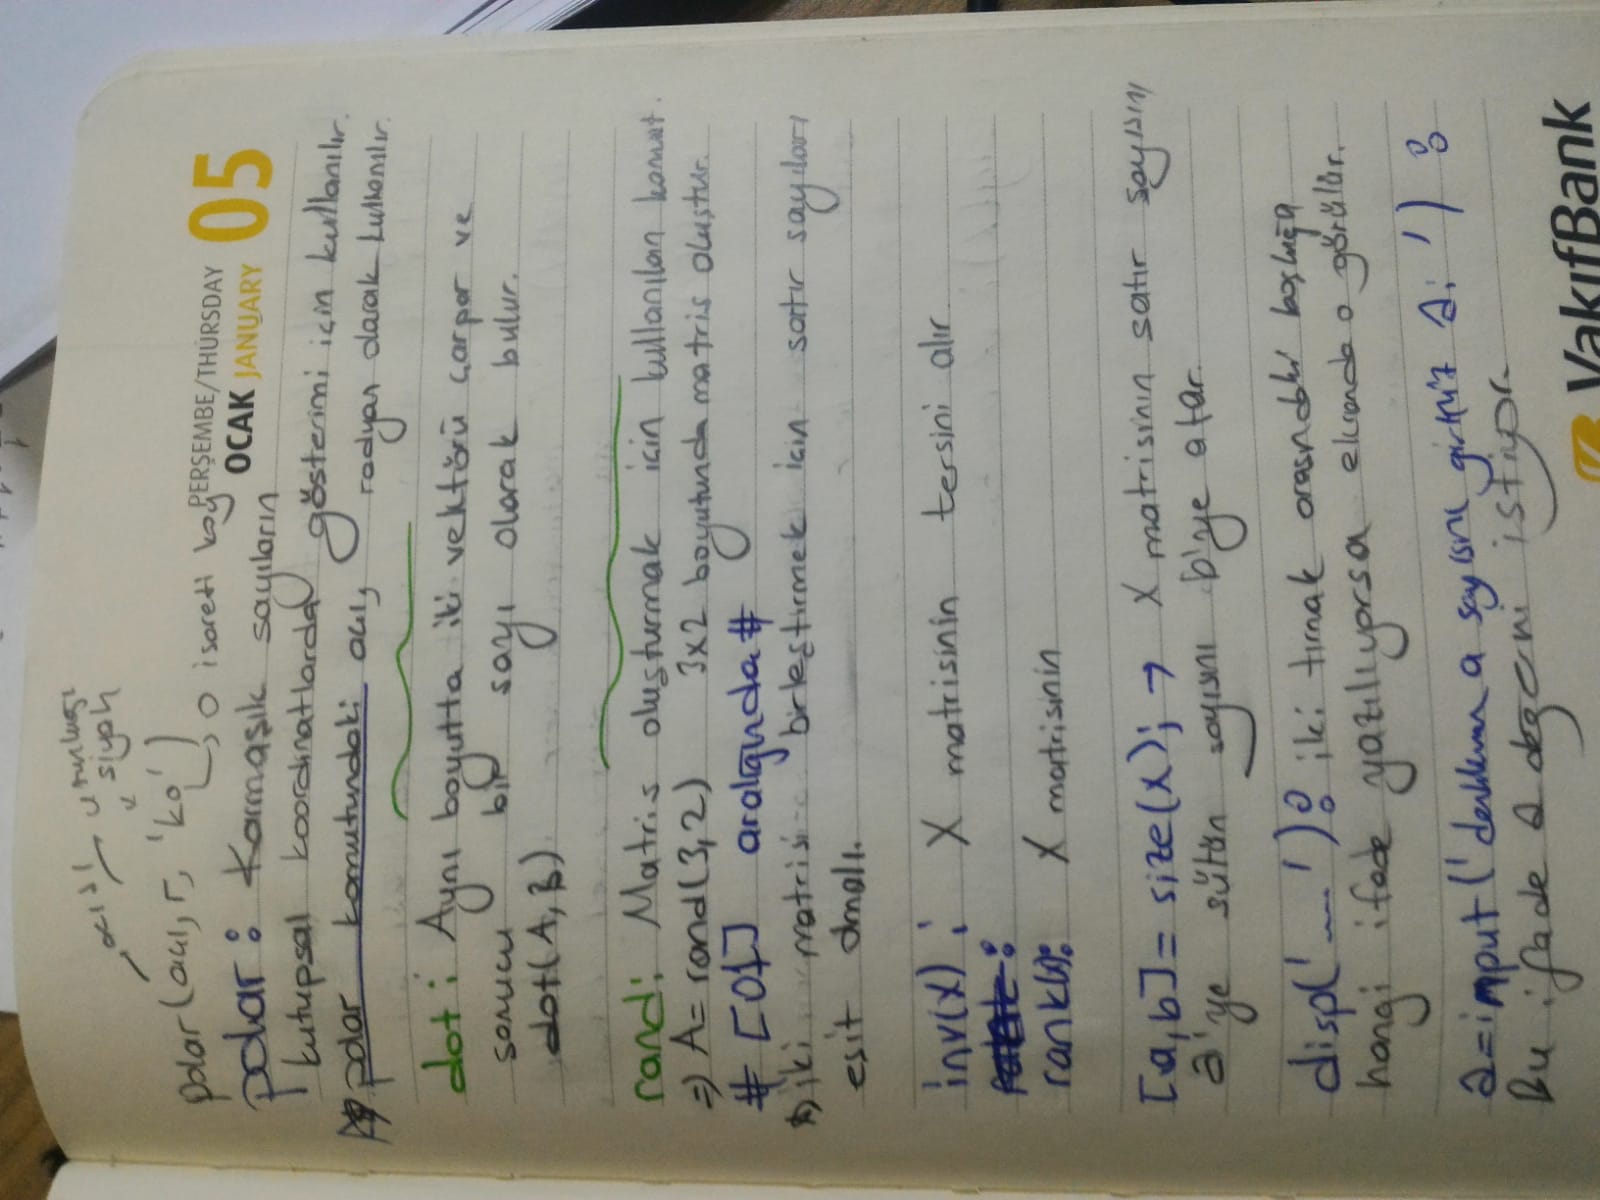 PERŞEMBE/THURSDAY
OCAK JANUARY 05
siyah
polar(acı, r, 'ko') , o isareti koy
polar : Karmaşık sayıların
kutupsal koordinatlarda gösterimi için kullanılır.
polar komutundaki acı, radyan olarak kullanılır.
dot : Aynı boyutta iki vektörü çarpar ve
sonucu bir sayı olarak bulur.
dot(A,B)
rand: Matris oluşturmak için kullanılan komut.
⇒ A=rand(3,2) 3x2 boyutunda matris oluştur.
# [01] aralığında #
iki matrisi birleştirmek için satır sayıları
esit olmalı.
inv(x) : X matrisinin tersini alır
rank(x): X matrisinin
[a,b]=size(x); → X matrisinin satır sayısını
a'ye sütün sayısını b'ye atar.
disp('__'): iki tırnak arasındaki boşluğa
hangi ifade yazılıyorsa ekranda o görülür.
a=input('denklemin a sayısını giriniz a: ') :
Bu ifade a değerini istiyor.
VakıfBank